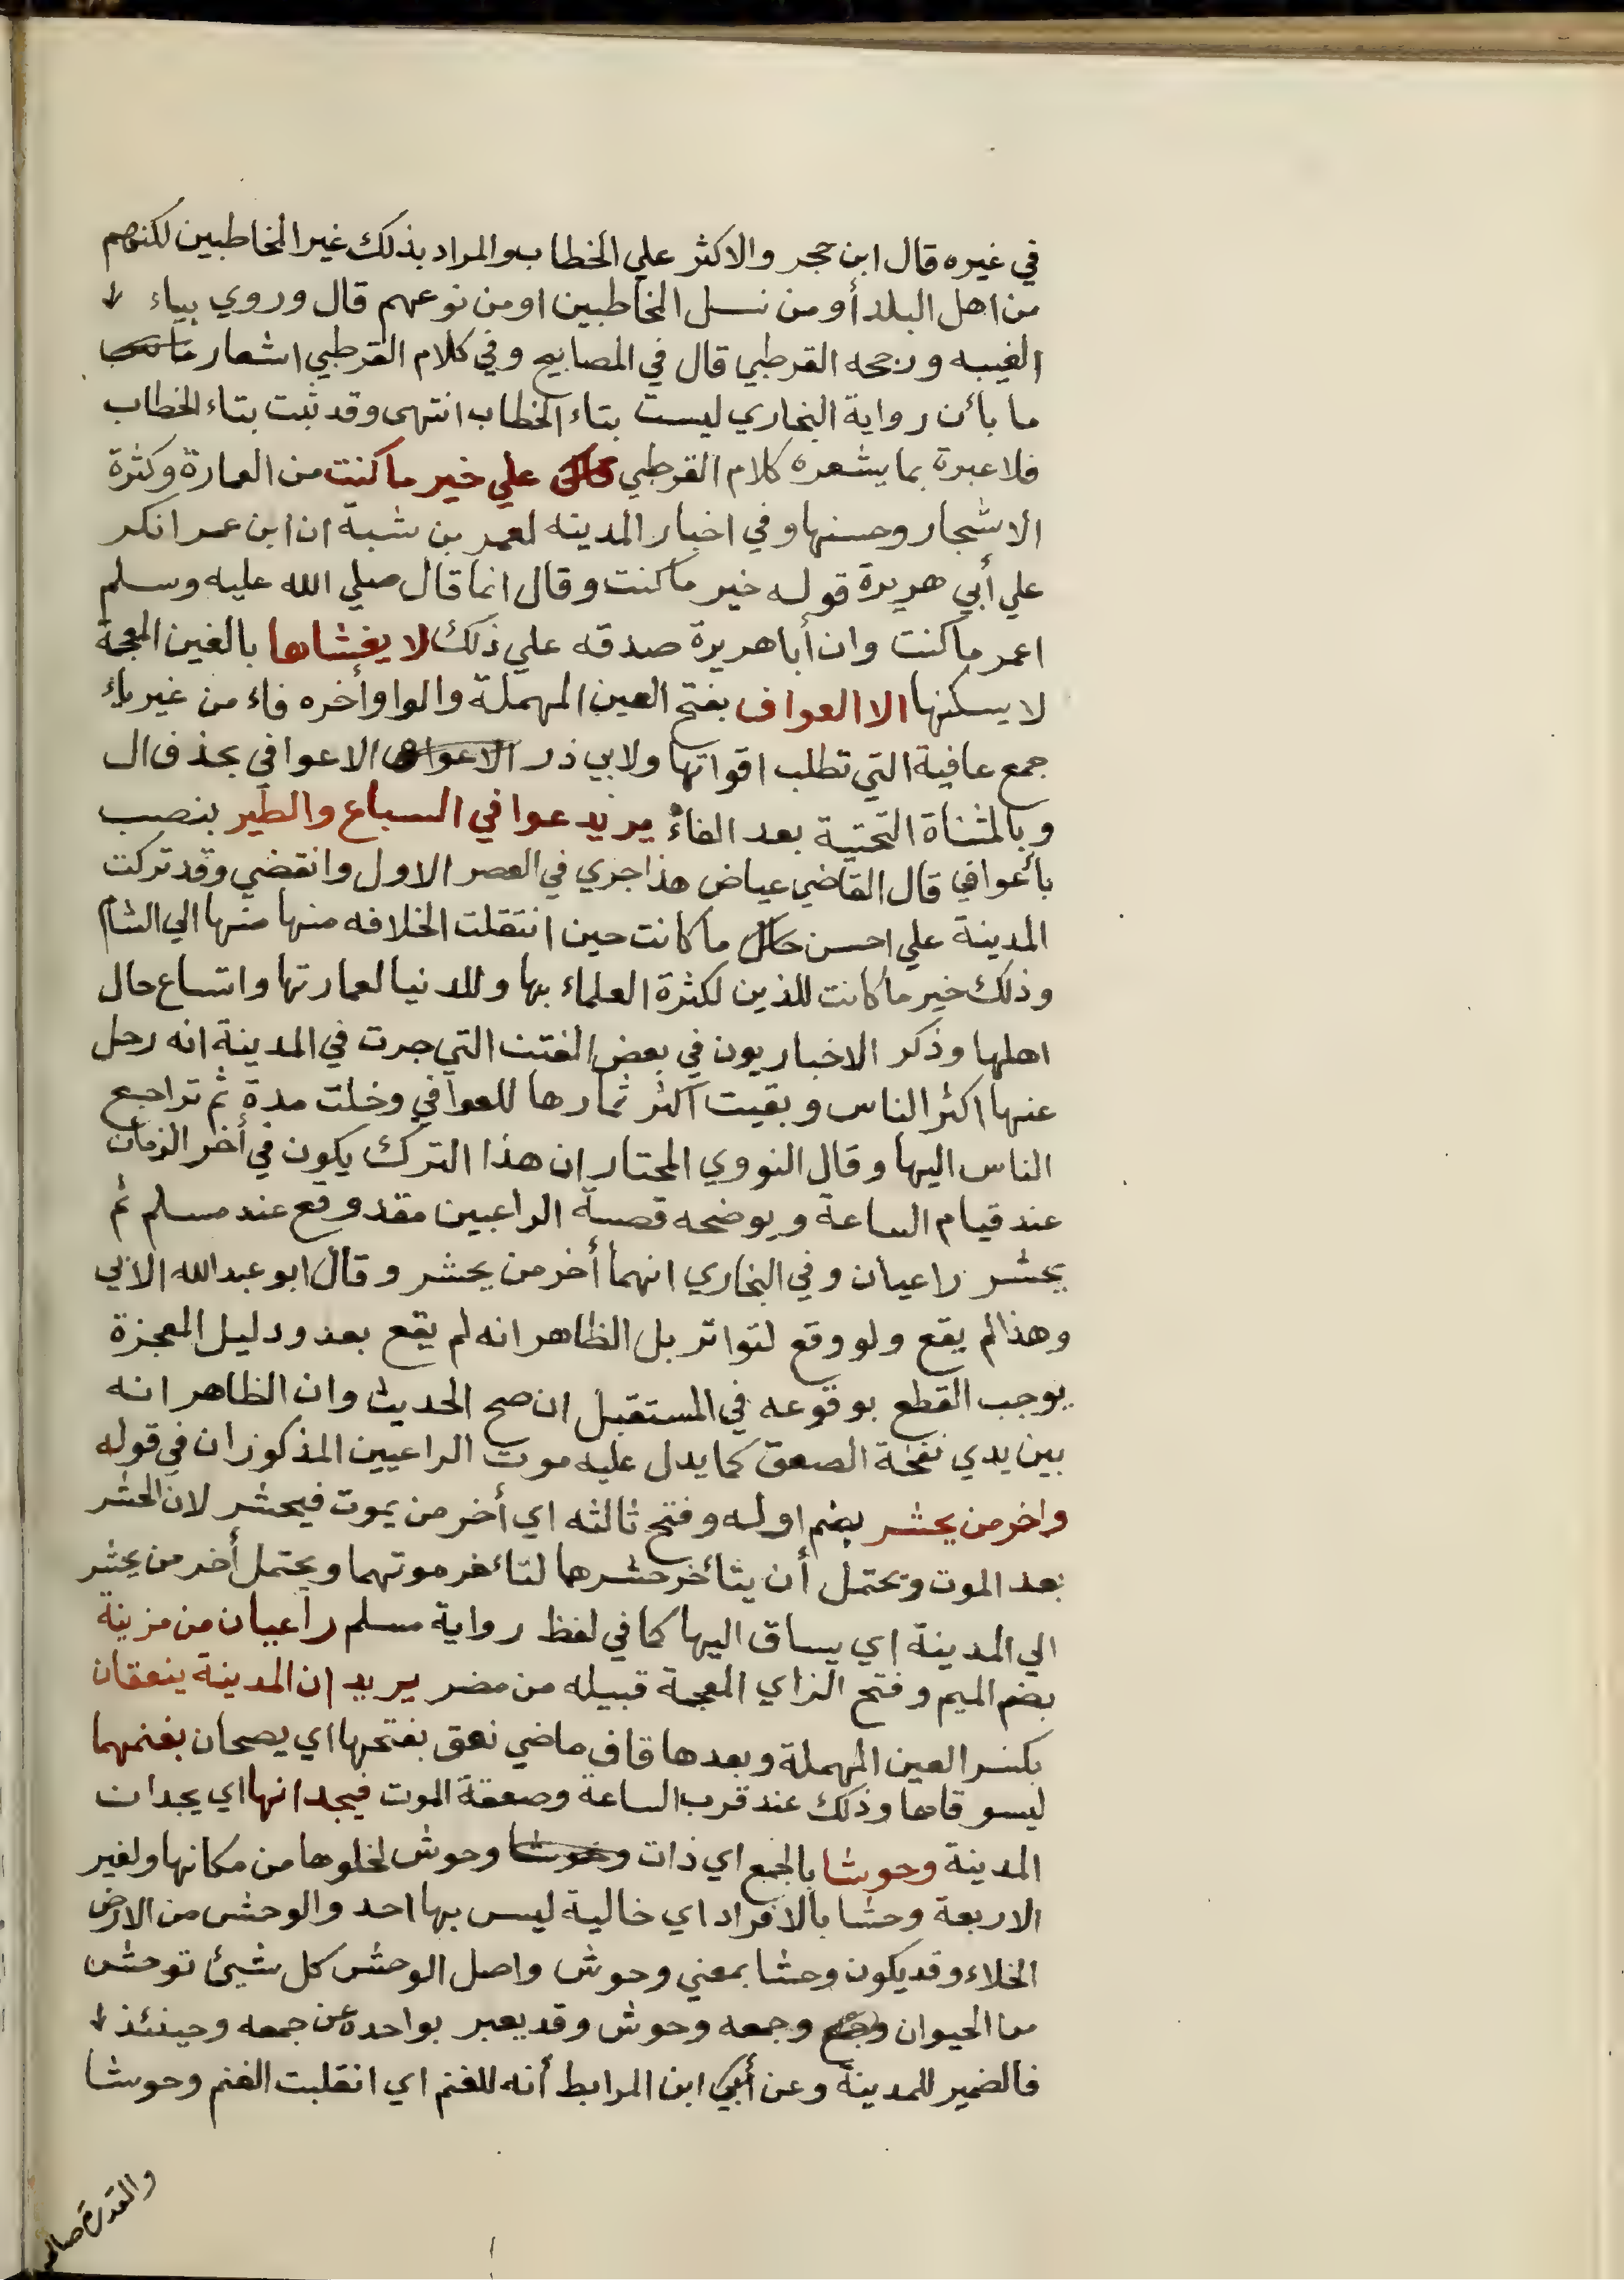 في غيره قال ابن حجر والاكثر علي الخطاب والمراد بذلك غير المخاطبين لكنهم
من اهل البلد أو من نسل المخاطبين او من نوعهم قال وروي بياء
الغيبه ورجحه القرطبي قال في المصابيح وفي كلام القرطبي اشعار
ما بأن رواية البخاري ليست بتاء الخطاب انتهى وقد ثبت بتاء الخطاب
فلا عبرة بما يشعره كلام القرطبي علي خير ما كنت من العمارة وكثرة
الاشجار وحسنها وفي اخبار المدينه لعمر بن شبة ان ابن عمر انكر
علي أبي هريرة قوله خير ما كنت وقال انما قال صلي الله عليه وسلم
اعمر ما كنت وان أبا هريرة صدقه علي ذلك لا يغشاها بالغين المعجمة
لا يسكنها الا العواف بفتح العين المهملة والواو أخره فاء من غير ياء
جمع عافية التي تطلب اقواتها ولابي ذر الاعوافي بحذف ال
وبالمثناة التحتية بعد الفاء يريد عوافي السباع والطير بنصب
بأعوافي قال القاضي عياض هذا جري في العصر الاول وانقضي وقد تركت
المدينة علي احسن حال ما كانت حين انتقلت الخلافه منها منها الي الشام
وذلك خير ما كانت للذين لكثرة العلماء بها وللدنيا لعمارتها واتساع حال
اهلها وذكر الاخباريون في بعض الفتن التي جرت في المدينة انه رحل
عنها اكثر الناس وبقيت اكثر ثمارها للعوافي وخلت مدة ثم تراجع
الناس اليها وقال النووي المختار ان هذا الترك يكون في أخر الزمان
عند قيام الساعة ويوضحه قصة الراعبين مقد وقع عند مسلم ثم
يحشر راعيان وفي البخاري انهما أخر من يحشر وقال ابو عبدالله الابي
وهذا لم يقع ولو وقع لتواتر بل الظاهر انه لم يقع بعد ودليل المعجزة
يوجب القطع بوقوعه في المستقبل ان صح الحديث وان الظاهر انه
بين يدي نفخة الصعق كما يدل عليه موت الراعيين المذكوران في قوله
واخر من يحشر بضم اوله وفتح ثالثه اي أخر من يموت فيحشر لان الحشر
بعد الموت ويحتمل أن يتأخر حشرهما لتائخر موتهما ويحتمل أخر من يحشر
الي المدينة اي يساق اليها كما في لفظ رواية مسلم راعيان من مزينة
بضم الميم وفتح الزاي المعجمة قبيله من مضر يريدان المدينة ينعقان
بكسر العين المهملة وبعدها قاف ماضي نعق بفتحها اي يصحان بغنمهما
ليسوقاها وذلك عند قرب الساعة وصعقة الموت فيجدانها اي يجدان
المدينة وحوشا بالجمع اي ذات وحوش لخلوها من مكانها ولغير
الاربعة وحشا بالافراد اي خالية ليس بها احد والوحش من الارض
الخلاء وقد يكون وحشا بمعني وحوش واصل الوحش كل شيئ توحش
من الحيوان وجمعه وحوش وقد يعبر بواحده عن جمعه وحينئذ
فالضمير للمدينة وعن ابن المرابط أنه للغنم اي انقلبت الغنم وحوشا
والقدرة